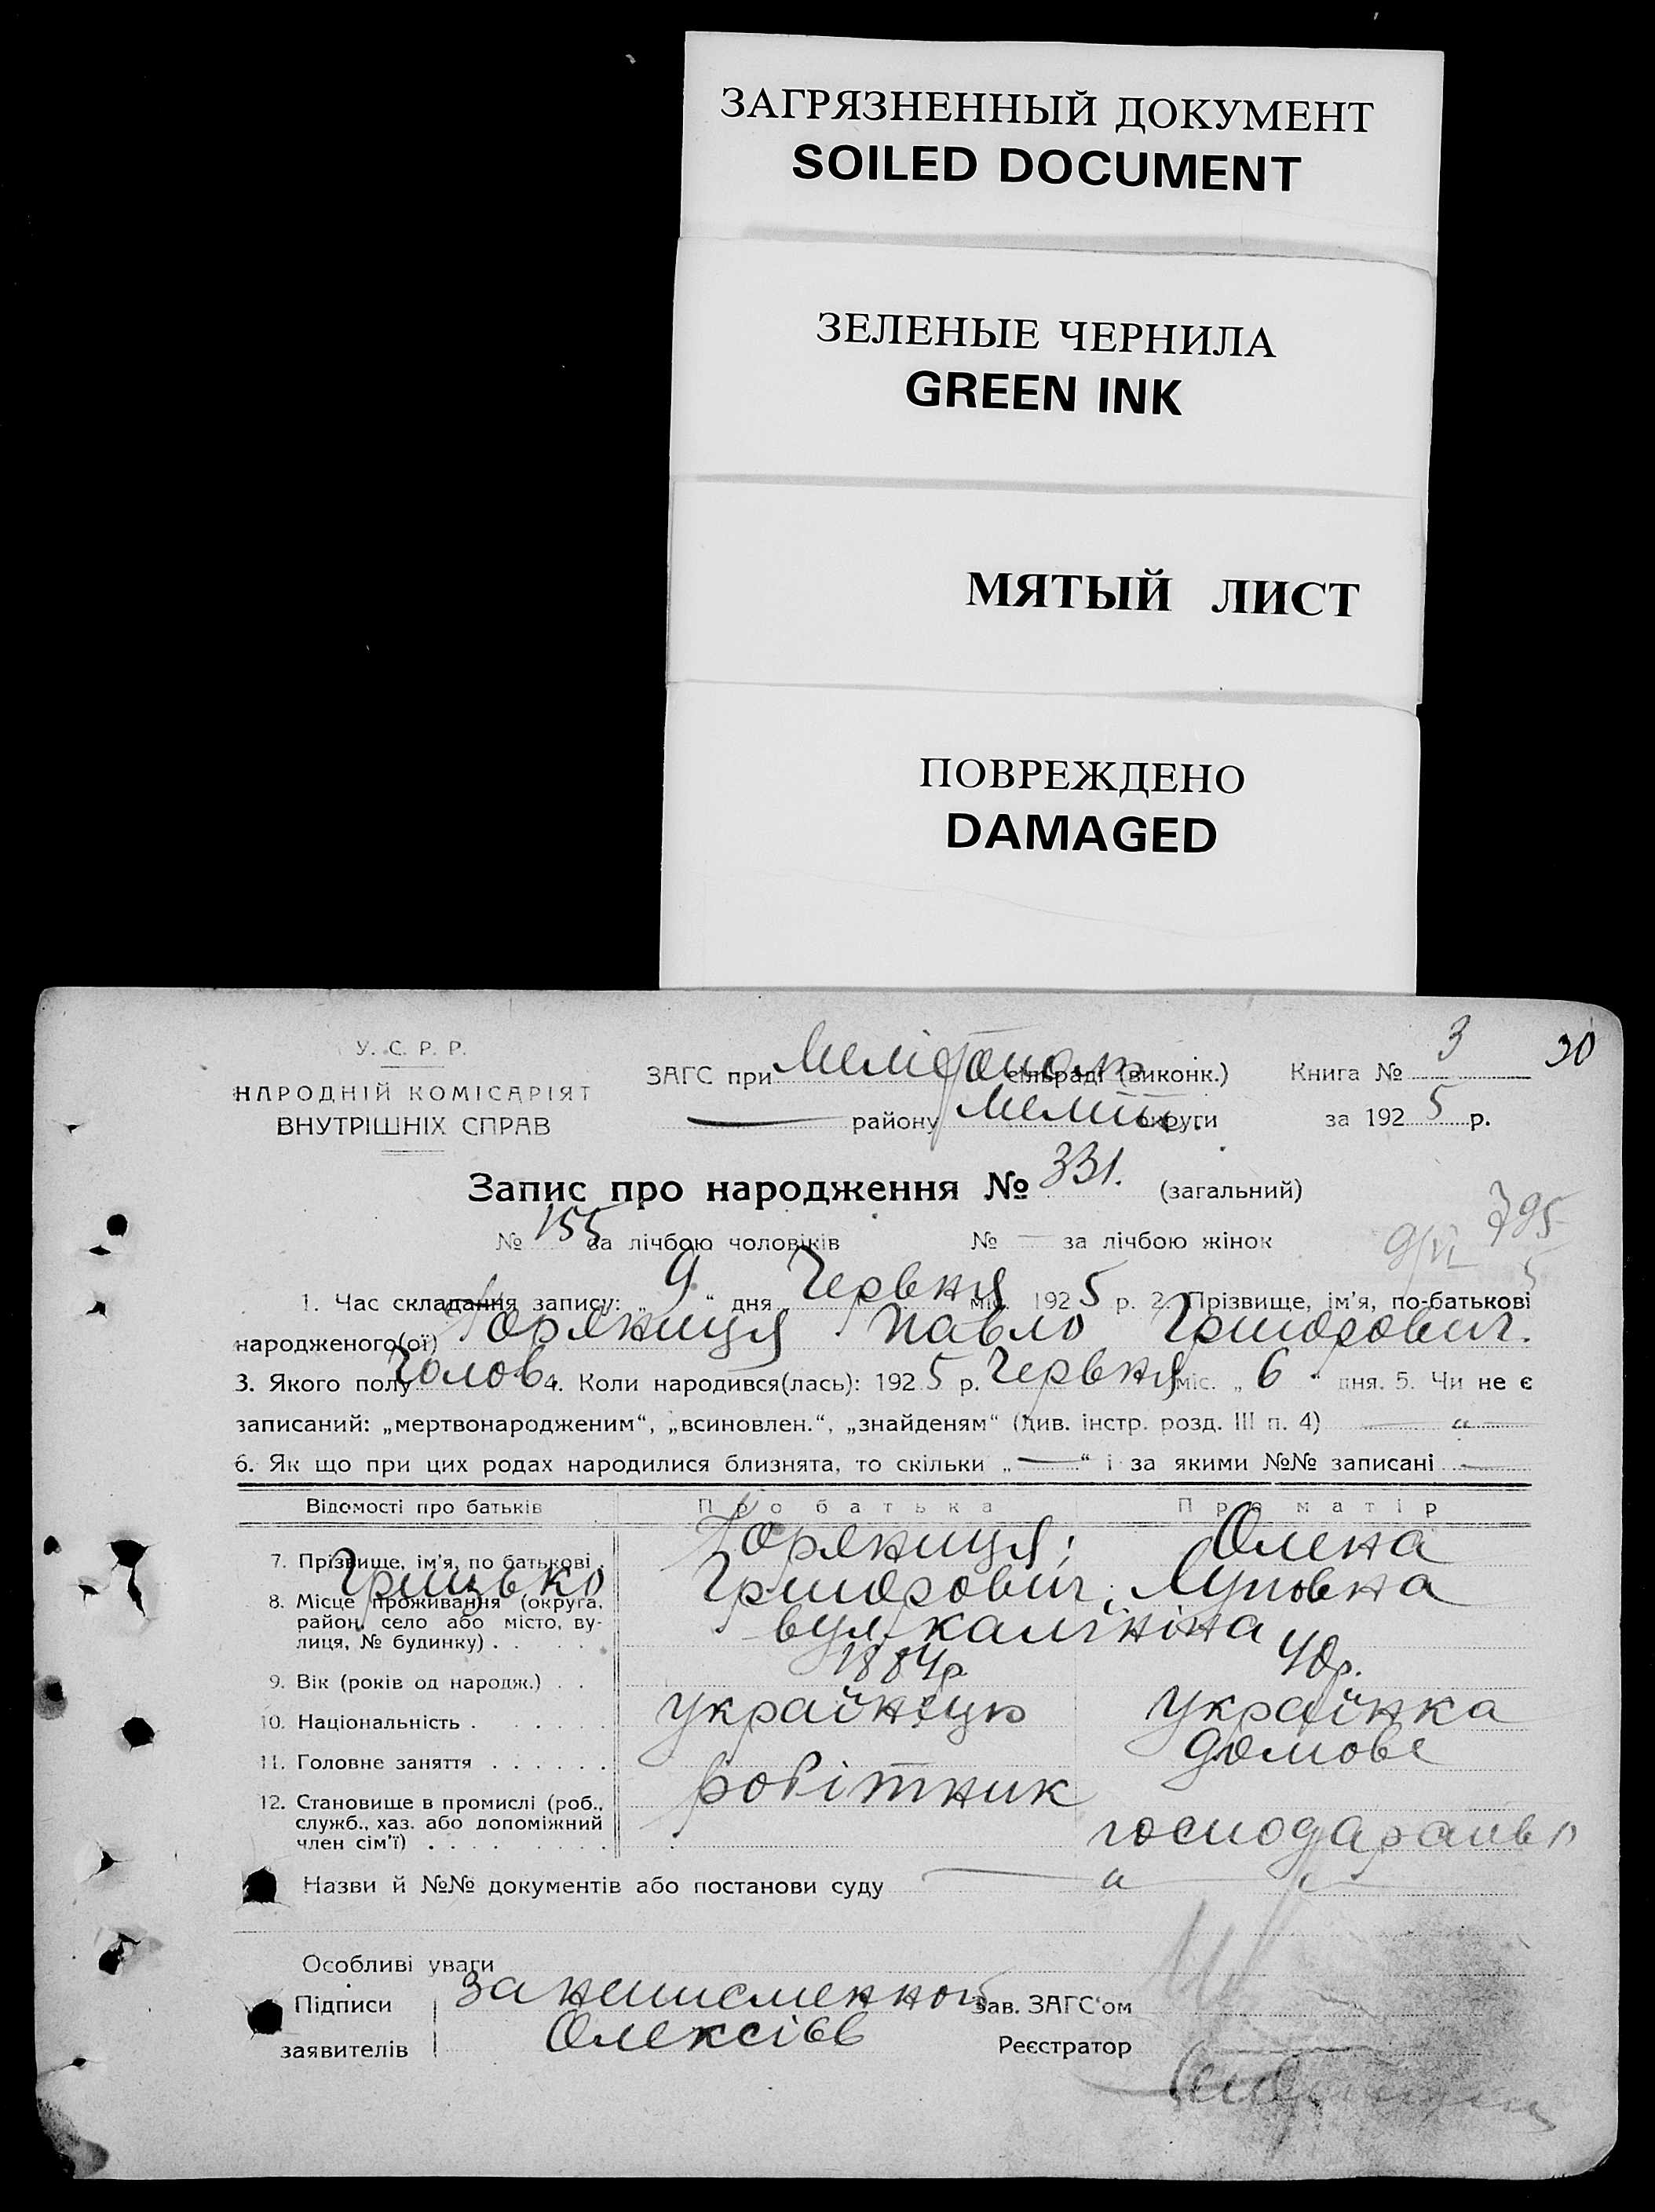 ЗАГРЯЗНЕННЫЙ ДОКУМЕНТ
SOILED DOCUMENT
ЗЕЛЕНЫЕ ЧЕРНИЛА
GREEN INK
МЯТЫЙ ЛИСТ
ПОВРЕЖДЕНО
DAMAGED
У. С. Р. Р.
НАРОДНІЙ КОМІСАРІЯТ
ВНУТРІШНІХ СПРАВ
ЗАГС при Мелітополь сільраді (виконк.)
району Меліт. округи
Книга № 3
30
за 1925 р.
Запис про народження № 331. (загальний)
№ 155 за лічбою чоловіків № — за лічбою жінок
795
9/VI
1. Час складання запису: „ 9 “ дня Червня міс. 1925 р. 2. Прізвище, ім’я, по-батькові
народженого(ої) Горяниця Павло Григорович.
3. Якого полу Чолов. 4. Коли народився(лась): 1925 р. Червня міс. „ 6 “ дня. 5. Чи не є
записаний: „мертвонародженим“, „всиновлен.“, „знайденям“ (див. інстр. розд. III п. 4) — „ —
6. Як що при цих родах народилися близнята, то скільки „ — “ і за якими №№ записані —
Відомості про батьків Про батька Про матір
7. Прізвище, ім’я, по батькові . Горяниця; Олена
Грицько Григорович; Луповна
8. Місце проживання (округа, район, село або місто, ву-
лиця, № будинку) . . . . вул. Калініна
9. Вік (років од народж.) . . 1884р. 40р.
10. Національність . . . . . . українець українка
11. Головне заняття . . . . . . робітник домове
12. Становище в промислі (роб.,
служб., хаз. або допоміжний
член сім’ї) . . . . . . . господарство
Назви й №№ документів або постанови суду — „ —
Особливі уваги
Підписи
заявителів
За неписменного
Олексієв
Зав. ЗАГС’ом
Реєстратор